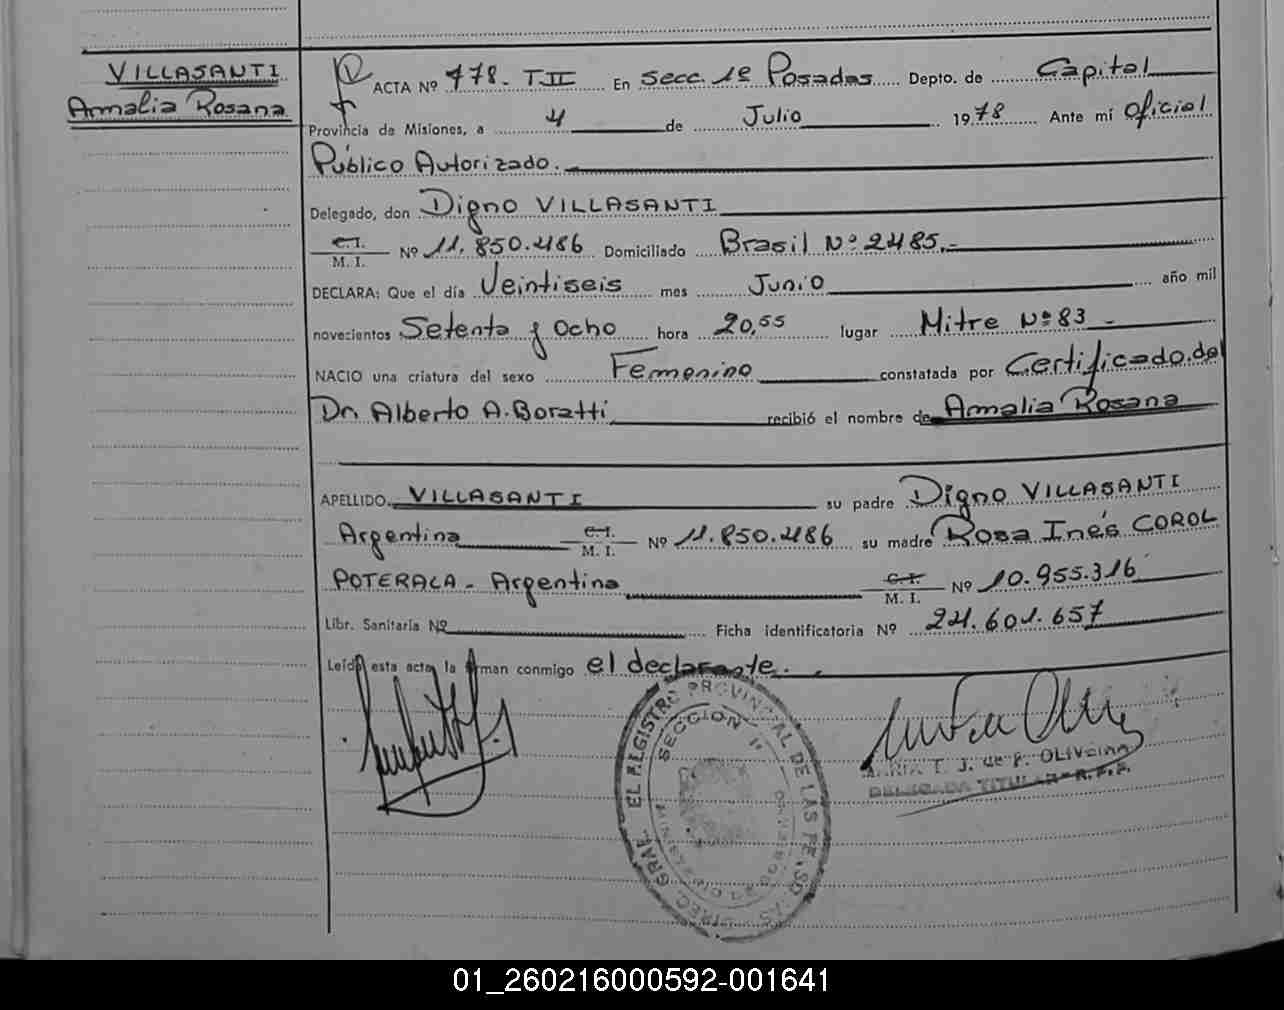 VILLASANTI
Amalia Rosana
ACTA Nº 478. T II En Secc. 1º Posadas Depto. de Capital
Provincia de Misiones, a 4 de Julio 1978 Ante mí Oficial
Público Autorizado.
Delegado, don Digno VILLASANTI
C.I.
M. I. Nº 11.850.486 Domiciliado Brasil Nº 2485.-
DECLARA: Que el día Veintiseis mes Junio año mil
novecientos Setenta y Ocho hora 20,55 lugar Mitre Nº 83 -
NACIO una criatura del sexo Femenino constatada por Certificado del
Dr. Alberto A. Boratti recibió el nombre de Amalia Rosana
APELLIDO VILLASANTI su padre Digno VILLASANTI
Argentina C.I.
M. I. Nº 11.850.486 su madre Rosa Inés COROL
POTERALA - Argentina C.I.
M. I. Nº 10.955.316
Libr. Sanitaria Nº Ficha identificatoria Nº 24.601.657
Leída esta acta, la firman conmigo el declarante.
DIREC. GRAL. EL REGISTRO PROVINCIAL DE LAS PERSONAS
SECCION 1ª
MARIA T. J. de F. OLIVEIRA
DELEGADA TITULAR R.P.P.
01_260216000592-001641